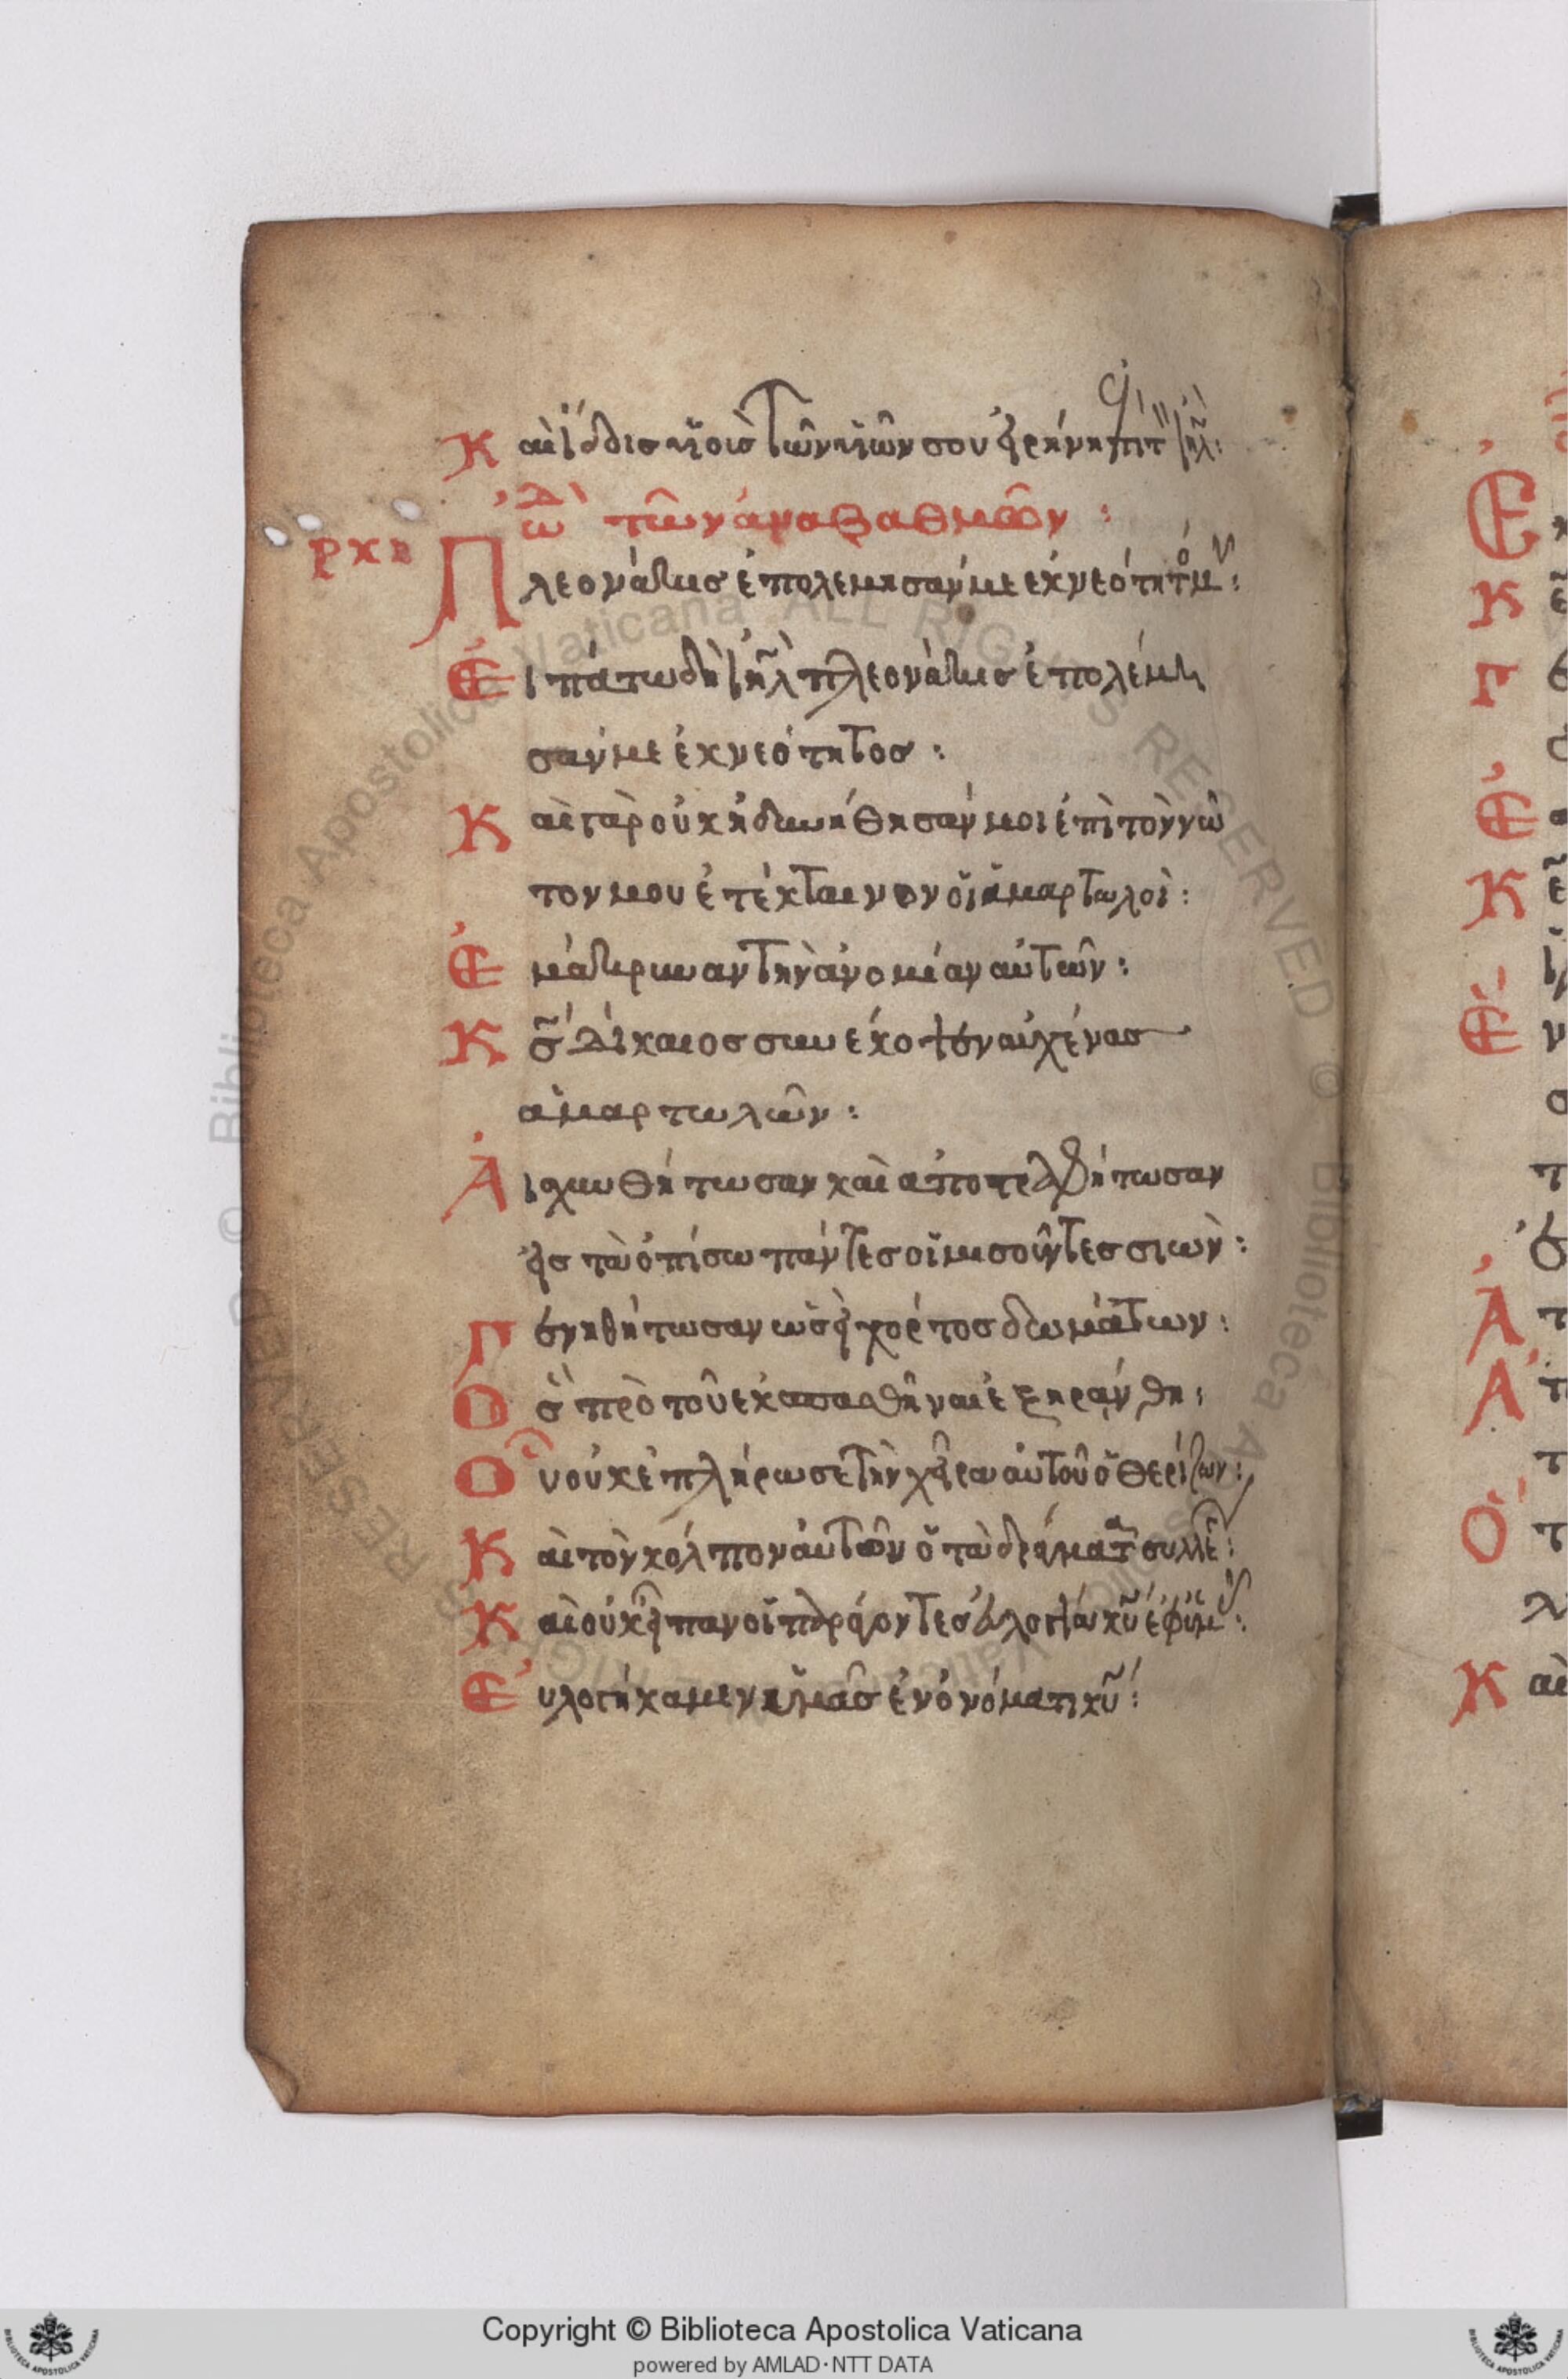 Καὶ ἴδοις υἱοὺς τῶν υἱῶν σου εἰρήνη ἐπὶ τ ιηλ:
ρκη ὠδὴ τῶν ἀναβαθμῶν:
Πλεονάκις ἐπολέμησάν με ἐκ νεότητό μου:
Εἰπάτω δὴ ιηλ πλεονάκις ἐπολέμη
σάν με ἐκ νεότητος:
Καὶ γὰρ οὐκ ἠδυνήθησάν μοι ἐπὶ τὸν νῶ
τον μου ἐτέκταινον οἱ ἁμαρτωλοί:
Ἐμάκρυναν τὴν ἀνομίαν αὐτῶν:
Κς δίκαιος συνέκοψεν αὐχένας
ἁμαρτωλῶν:
Αἰσχυνθήτωσαν καὶ ἀποστραφήτωσαν
εἰς τὰ ὀπίσω πάντες οἱ μισοῦντες σιών:
Γενηθήτωσαν ὡσεὶ χόρτος δωμάτων:
Ὃς πρὸ τοῦ ἐκσπασθῆναι ἐξηράνθη:
Οὗ οὐκ ἐπλήρωσε τὴν χεῖρα αὐτοῦ ὁ θερίζων:
Καὶ τὸν κόλπον αὐτῶν ὁ τὰ δράγματα συλλε:
Καὶ οὐκ εἶπαν οἱ παράγοντες εὐλογία κυ ἐφ ὑμ:
Εὐλογήκαμεν ἡμᾶς ἐν ὀνόματι κυ:
Copyright © Biblioteca Apostolica Vaticana
powered by AMLAD·NTT DATA